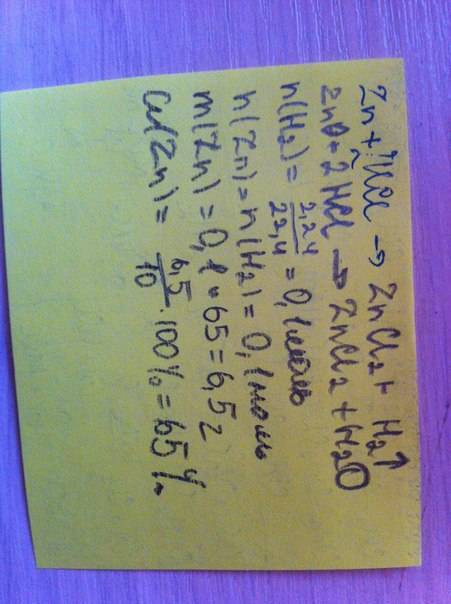 Zn + 2HCl → ZnCl2 + H2↑
ZnO + 2HCl → ZnCl2 + H2O
n(H2) = 2,24/22,4 = 0,1 моль
n(Zn) = n(H2) = 0,1 моль
m(Zn) = 0,1 • 65 = 6,5 г
ω(Zn) = 6,5/10 · 100% = 65%